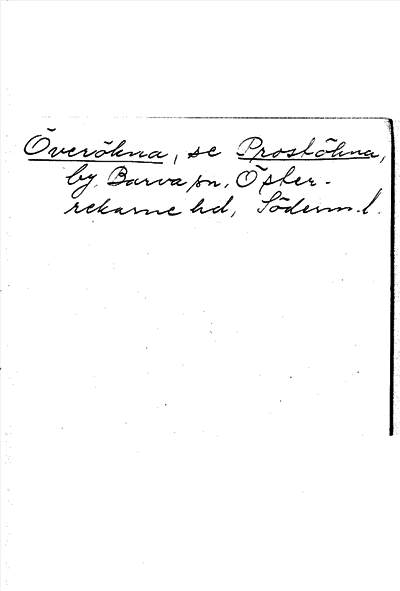 Överökna, se Prostökna,
by, Barva sn, Öster-
rekarne hd, Söderm. l.